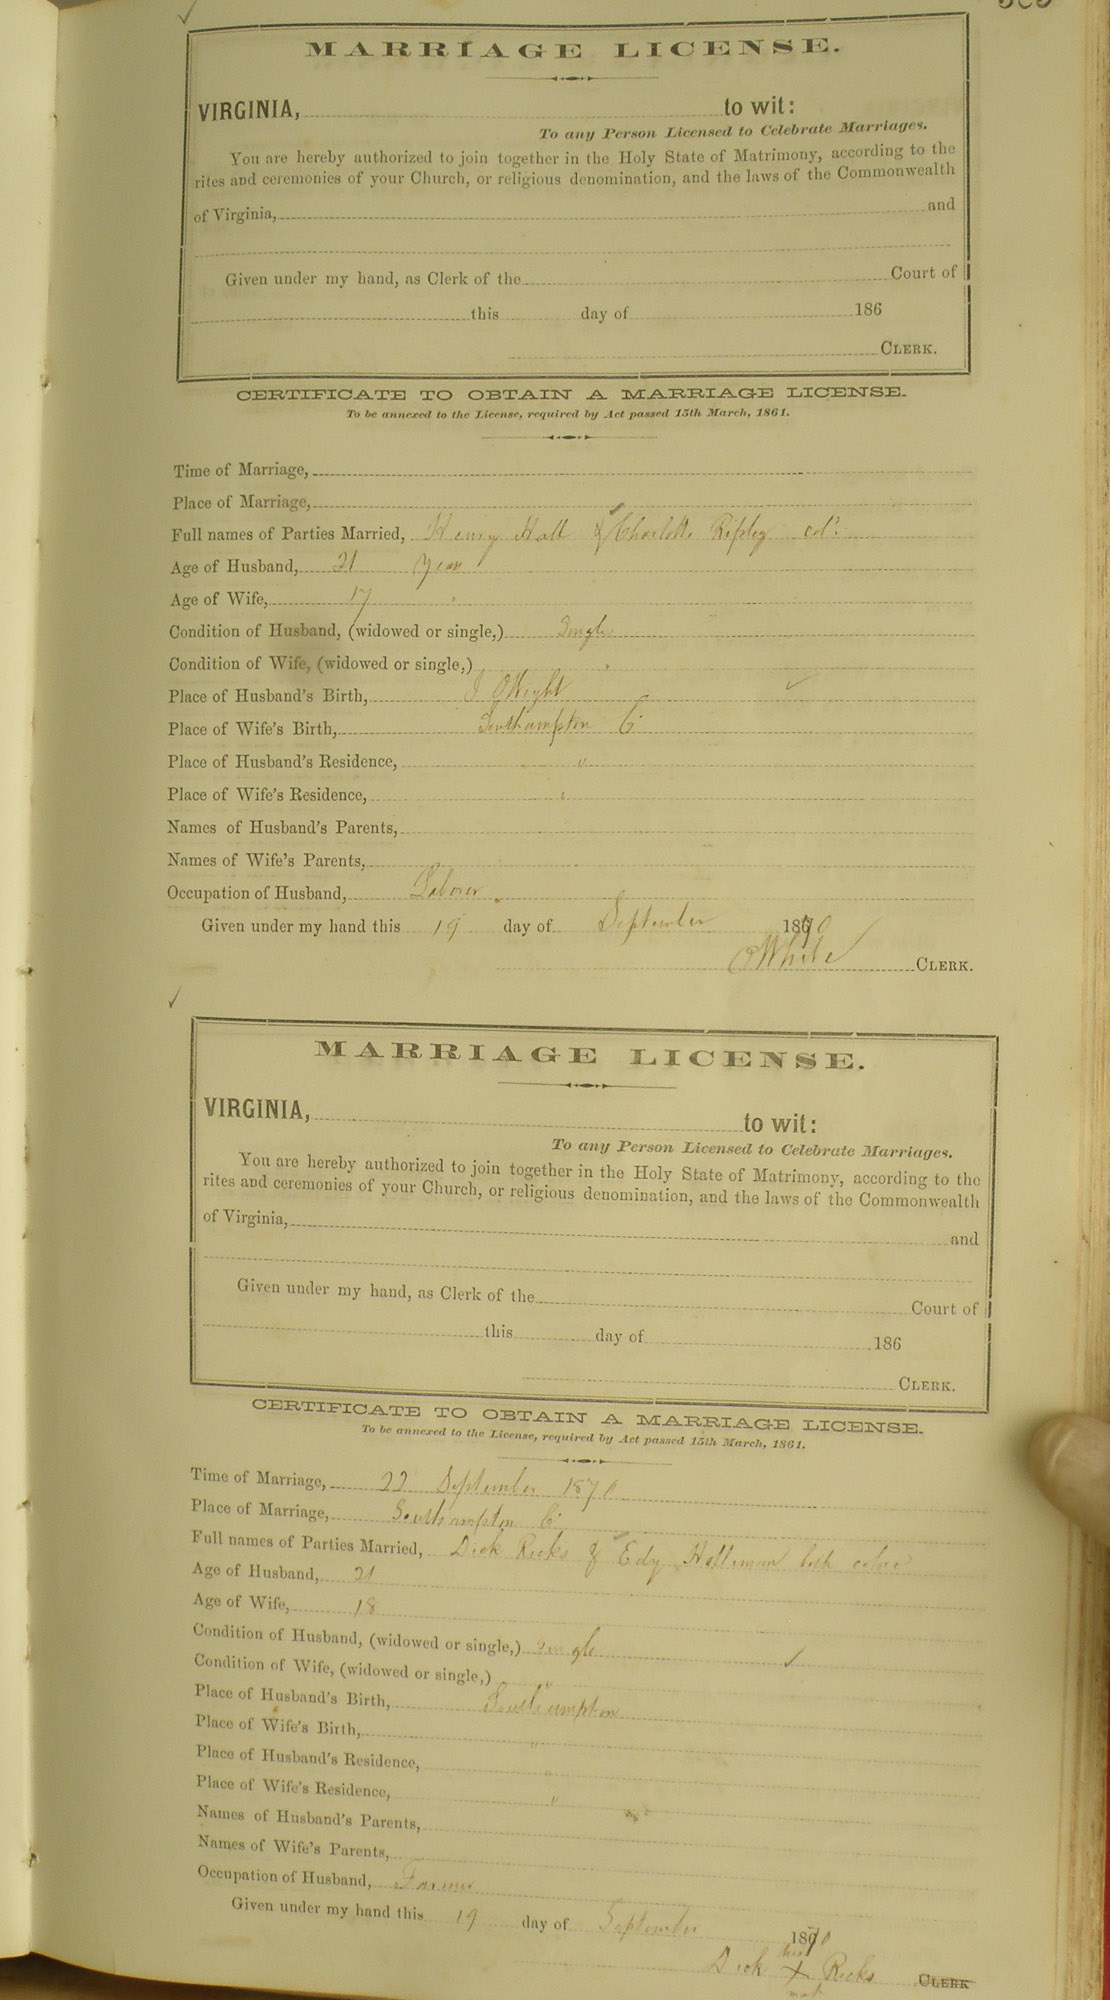 MARRIAGE LICENSE.
VIRGINIA, to wit:
To any Person Licensed to Celebrate Marriages.
You are hereby authorized to join together in the Holy State of Matrimony, according to the
rites and ceremonies of your Church, or religious denomination, and the laws of the Commonwealth
of Virginia, and
Given under my hand, as Clerk of the Court of
this day of 186
CLERK.
CERTIFICATE TO OBTAIN A MARRIAGE LICENSE.
To be annexed to the License, required by Act passed 15th March, 1861.
Time of Marriage,
Place of Marriage,
Full names of Parties Married, Henry Hall & Charlotte Ripley col
Age of Husband, 21 Year
Age of Wife, 17 "
Condition of Husband, (widowed or single,) Single
Condition of Wife, (widowed or single,) "
Place of Husband's Birth, I Wight
Place of Wife's Birth, Southampton C
Place of Husband's Residence, "
Place of Wife's Residence, "
Names of Husband's Parents,
Names of Wife's Parents,
Occupation of Husband, Laborer
Given under my hand this 19 day of September 1870
White CLERK.
MARRIAGE LICENSE.
VIRGINIA, to wit:
To any Person Licensed to Celebrate Marriages.
You are hereby authorized to join together in the Holy State of Matrimony, according to the
rites and ceremonies of your Church, or religious denomination, and the laws of the Commonwealth
of Virginia, and
Given under my hand, as Clerk of the Court of
this day of 186
CLERK.
CERTIFICATE TO OBTAIN A MARRIAGE LICENSE.
To be annexed to the License, required by Act passed 15th March, 1861.
Time of Marriage, 22 September 1870
Place of Marriage, Southampton C
Full names of Parties Married, Dick Ricks & Edy Holleman both colored
Age of Husband, 21
Age of Wife, 18
Condition of Husband, (widowed or single,) Single
Condition of Wife, (widowed or single,) "
Place of Husband's Birth, Southampton
Place of Wife's Birth, "
Place of Husband's Residence, "
Place of Wife's Residence, "
Names of Husband's Parents,
Names of Wife's Parents,
Occupation of Husband, Farmer
Given under my hand this 19 day of September 1870
his
Dick X Ricks CLERK
mark